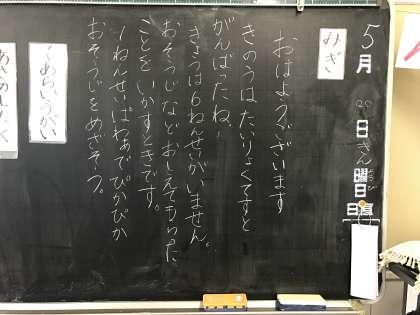 5月20日
曜日
日直
みぎ
おはようございます
きのうはたいりょくてすと
がんばったね。
きょうは6ねんせいがいません。
おそうじなどおしえてもらった
ことをいかすときです。
1ねんせいぱわぁでぴかぴか
おそうじをめざそう。
てあらいうがい
あさのしたく